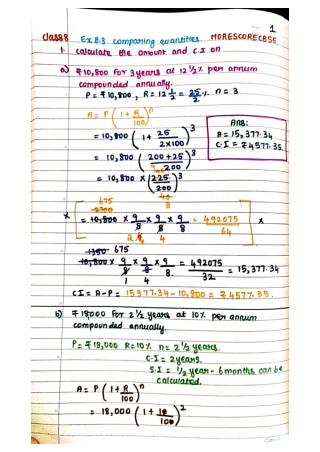 1
class 8 Ex 8.3 comparing quantities. MORESCORECBSE
1. calculate the amount and C.I on
a) ₹10,800 for 3 years at 12 ½ % per annum
compounded annually.
P = ₹10,800, R = 12 ½ = 25/2 %. n = 3
A = P (1 + R/100)^n
Ans:
A = 15,377.34
C.I = ₹4577.35.
= 10,800 (1 + 25/2×100)^3
= 10,800 (200+25/200)^3
= 10,800 × (225/200)^3
675
2700
x = 10,800 × 9/8 × 9/8 × 9/8 = 492075/64 x
2 4
1350 675
10,800 × 9/8 × 9/8 × 9/8 = 492075/32 = 15,377.34
1 4
CI = A-P = 15377.34 - 10,800 = ₹4577.35.
b) ₹18000 for 2 ½ years at 10% per annum
compounded annually.
P = ₹18,000 R = 10% n = 2 ½ years.
C.I = 2 years.
S.I = ½ year - 6 months can be
calculated.
A = P (1 + R/100)^n
= 18,000 (1 + 10/100)^2